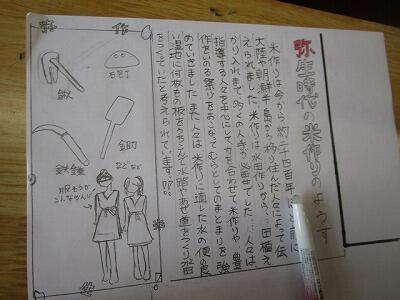 弥生時代の米作りのようす
米作りは今から約二千四百年ほど前に
大陸や朝鮮半島から移り住んだ人々によって伝
えられました。米作りは水田作りから……田植え
かり入れまで多くの人手が必要でした。……人々は
指導する人々を中心にして力を合わせて米作りや、豊
作をいのる祭りをおこなってむらとしてのまとまりを強
めていきました。また人々は米作りに適した水の便の良
い湿地に何枚もの板をうちこんで水路やあぜ道をつくり水田
をつくっていたと考えられています。
石包丁
鍬
鋤
鉄鎌
などなど
服そうが
こんなかんじ